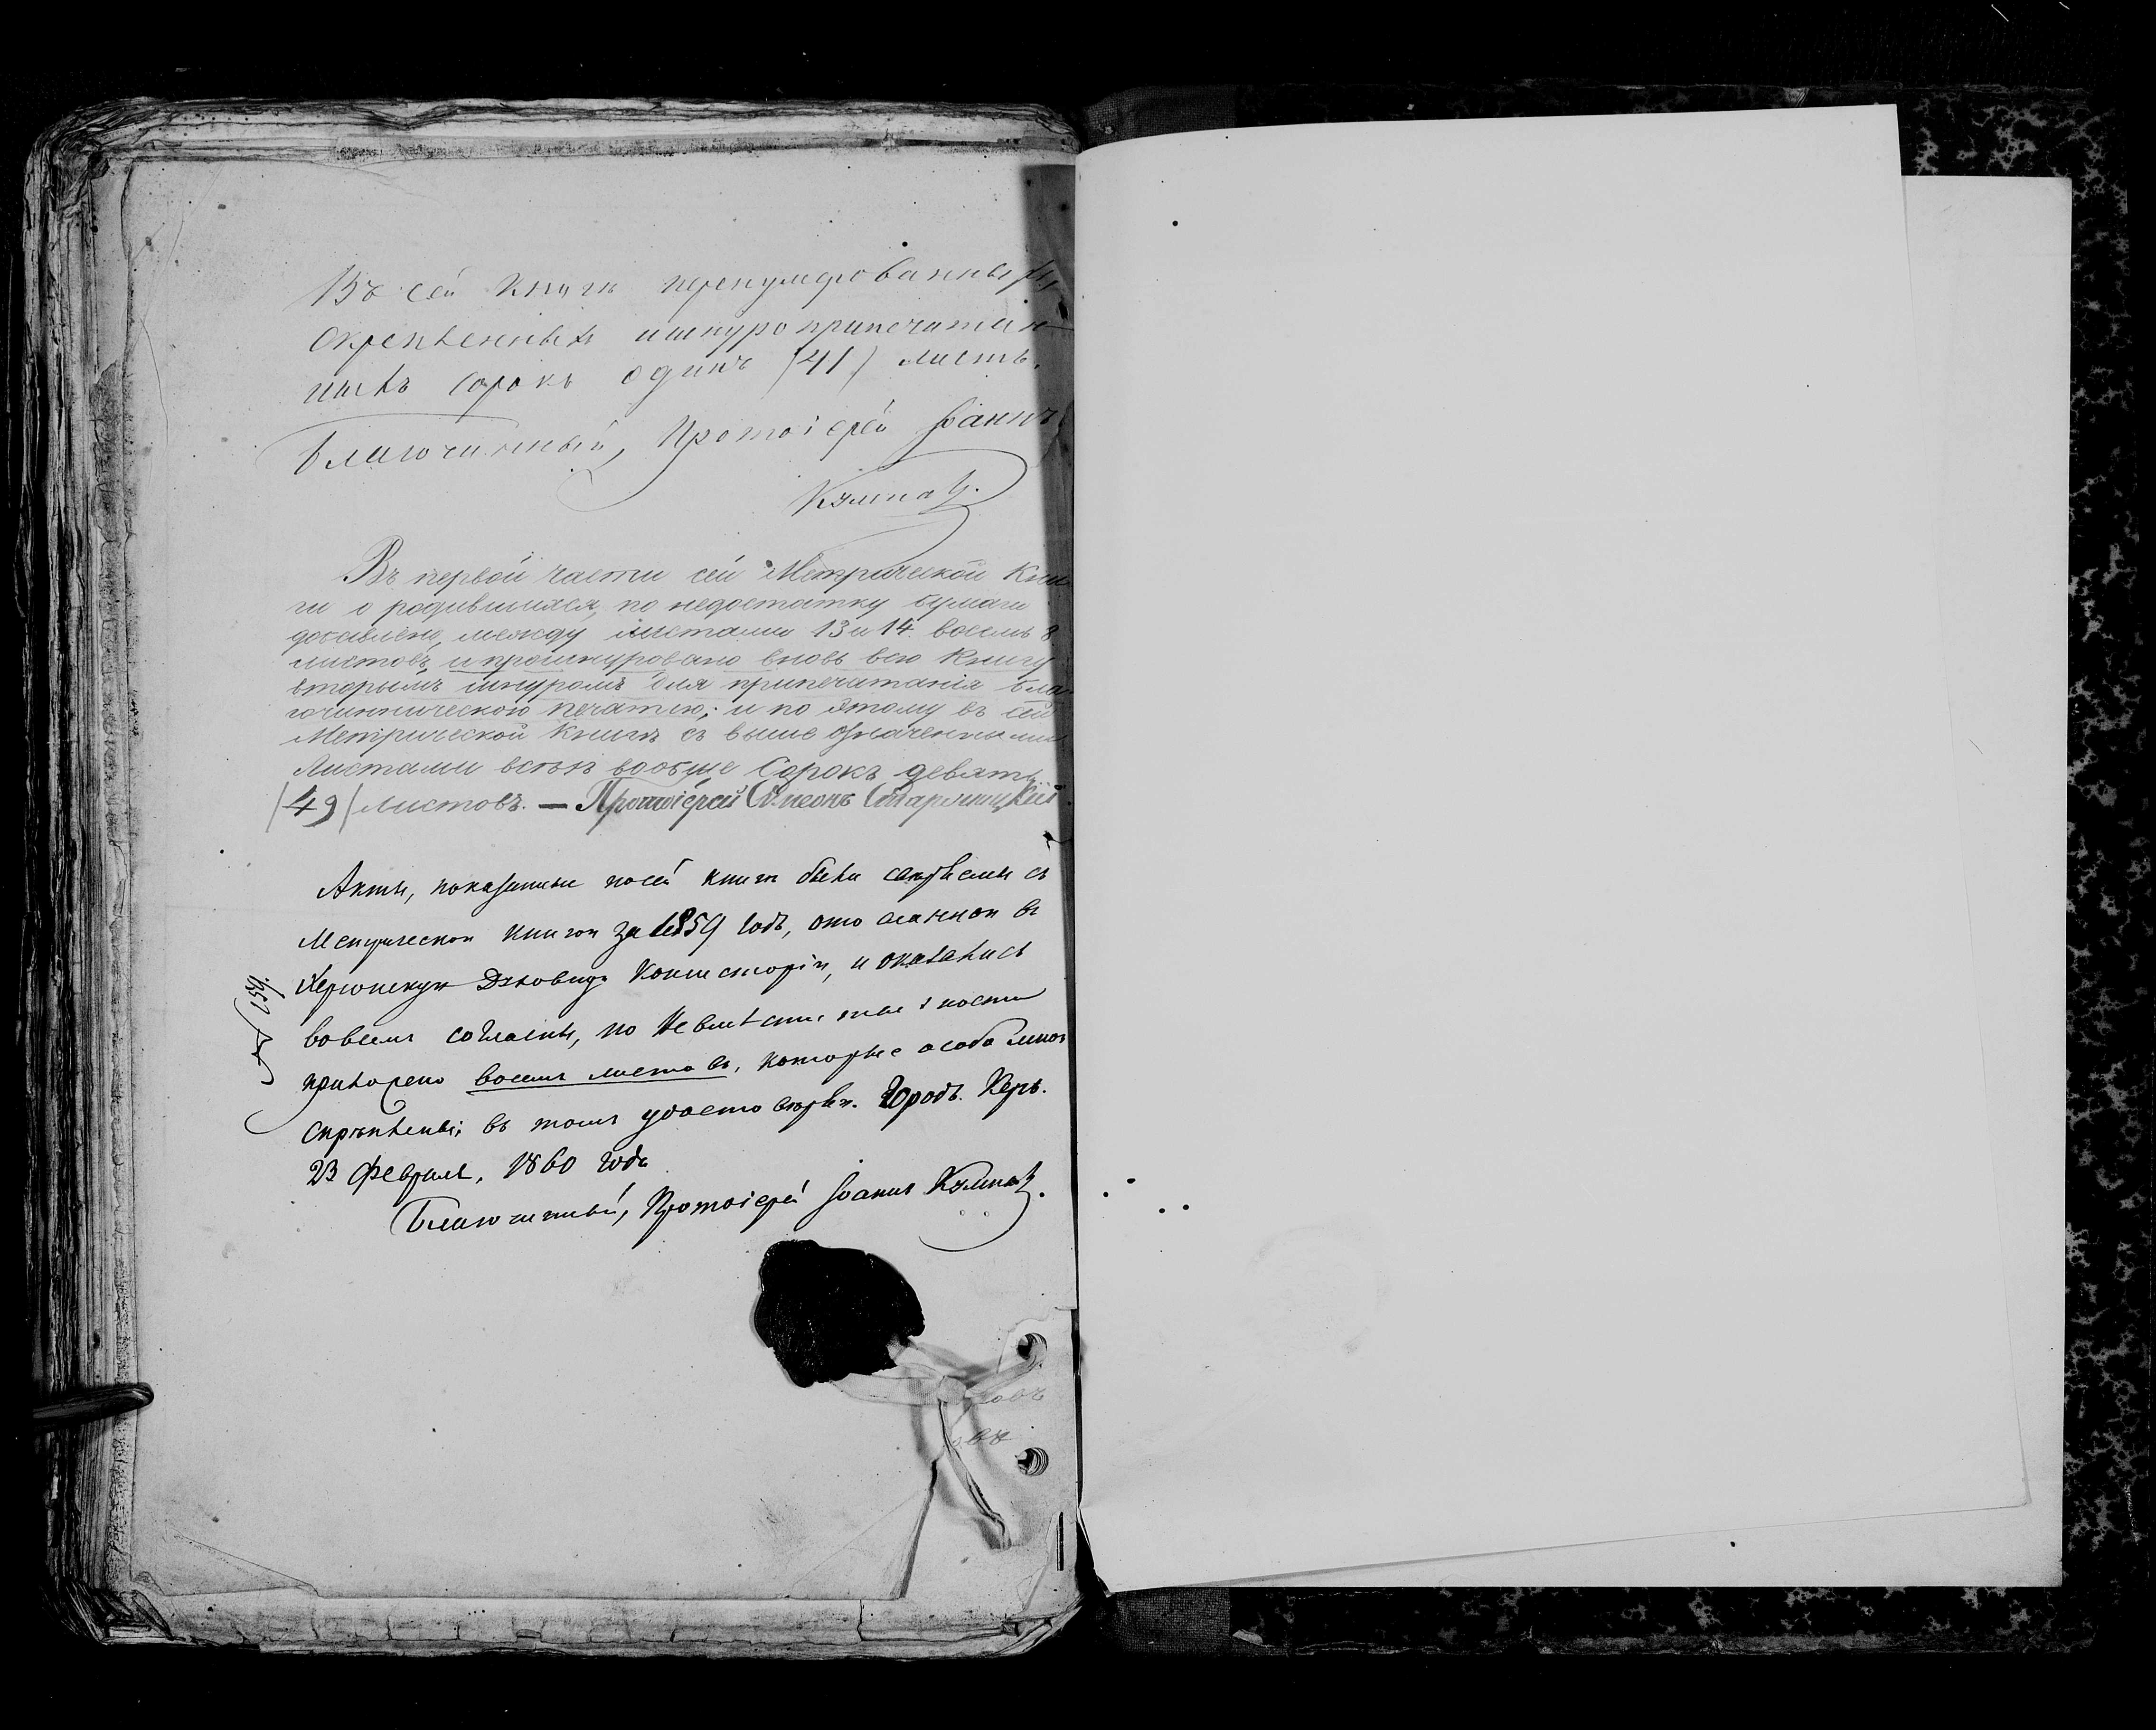 Въ сей книгѣ перенумерованныхъ,
скрѣпленныхъ и шнуроприпечатан-
ныхъ сорокъ одинъ (41) листъ.
Благочинный, Протоіерей Іоаннъ
Въ первой части сей Метрической Кни
ги о родившихся, по недостатку бумаги
добавлено, между листами 13 и 14. восемь 8
листовъ, и прошнуровано вновь всю Книгу
вторымъ шнуромъ для припечатанія бла
гочинническою печатію; и по этому въ сей
Метрической Книгѣ съ выше означенными
Листами всѣхъ вообще Сорокъ девять
(49) листовъ. — Протоіерей Сѵмеонъ
Акты, показанные по сей книгѣ были свѣрены съ
Метрическою книгою за 1859 годъ, отосланною въ
Херсонскую Духовную Консисторію, и оказались
во всемъ согласны, по
восемь листовъ, которые особо мною
скрѣплены; въ томъ удостовѣряю. Городъ
23 Февраля, 1860 года
Благочинный, Протоіерей Іоаннъ